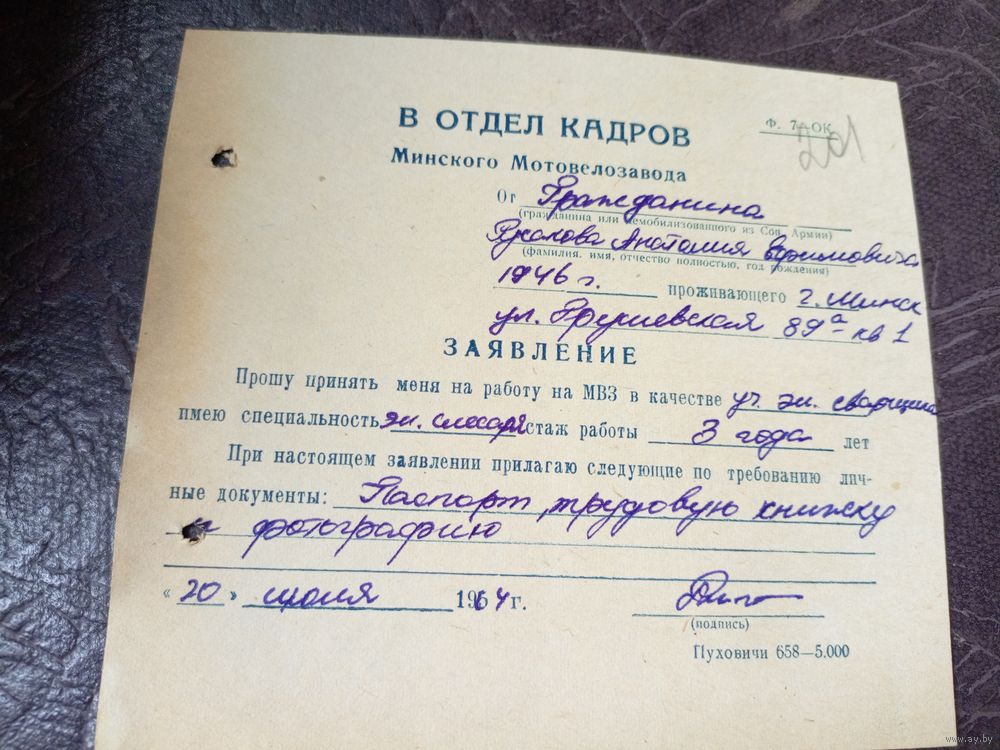 В ОТДЕЛ КАДРОВ
Ф. 7, ОК
Минского Мотовелозавода
От Гражданина
(гражданина или демобилизованного из Сов. Армии)
Анатолия Ефимовича
(фамилия. имя, отчество полностью, год рождения)
1946 г. проживающего г. Минск
ул. Грушевская 89а кв 1
ЗАЯВЛЕНИЕ
Прошу принять меня на работу на МВЗ в качестве уч. эл. сварщика
имею специальность эл. слесаря стаж работы 3 года лет
При настоящем заявлении прилагаю следующие по требованию лич-
ные документы: Паспорт, трудовую книжку
и фотографию
«20» июля 1964 г.
(подпись)
Пуховичи 658—5.000
www.ay.by